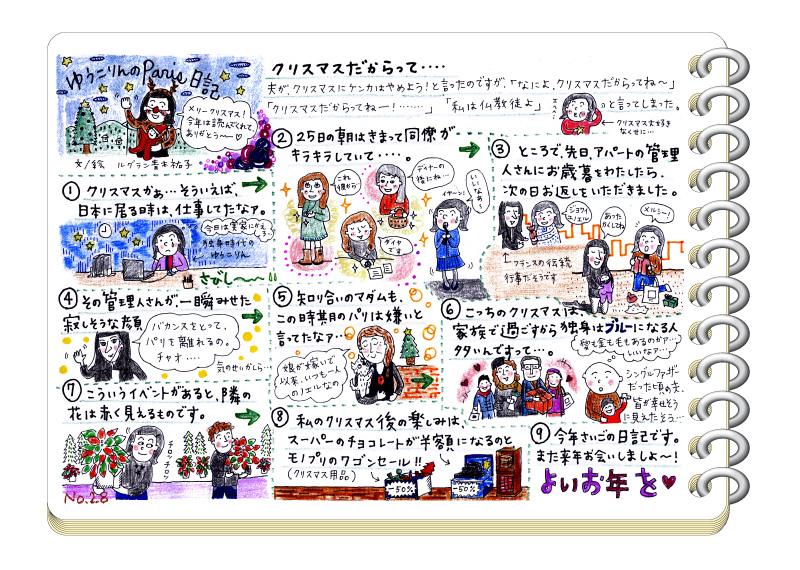 ゆうこりんのParis日記
メリークリスマス！
今年は読んでくれて
ありがとう〜〜♡
文/絵 ルグラン青木祐子
クリスマスだからって‥‥
夫が、クリスマスにケンカはやめよう！と言ったのですが、「なによ、クリスマスだからってね〜」
「クリスマスだからってねー！‥‥‥」「私は仏教徒よ」 と言ってしまった。
クリスマス大好き
なくせに…
① クリスマスかぁ…そういえば、
日本に居る時は、仕事してたなァ。
今日は実家にかえろ
独身時代の
ゆうこりん
さびし〜〜
② 25日の朝はきまって同僚が
キラキラしていて‥‥。
これ
彼から
ディナーの
後にね…
ダイヤ
です
イヤーン！
いいなぁ〜
③ ところで、先日、アパートの管理
人さんにお歳暮をわたしたら、
次の日お返しをいただきました。
ジョワイ
ノエル
あった
かくしてね
メルシー！
フランスの伝統
行事だそうです
④ その管理人さんが一瞬みせた
寂しそうな顔
バカンスをとって、
パリを離れるの。
チャオ‥‥
気のせいかしら…
⑤ 知り合いのマダムも、
この時期のパリは嫌いと
言ってたなァ…
娘が嫁いで
以来、いつも一人
のノエルなの
⑥ こっちのクリスマスは、
家族で過ごすから独身はブルーになる人
多いんですって…。
シングルファザー
だった頃の夫、
皆が幸せそう
に見えたそう…
⑦ こういうイベントがあると、隣の
花は赤く見えるものです。
チロッ チロッ
No.28
⑧ 私のクリスマス後の楽しみは、
スーパーのチョコレートが半額になるのと
モノプリのワゴンセール!!
(クリスマス用品)
-50%
-50%
⑨ 今年さいごの日記です。
また来年お会いしましょ〜！
よいお年を♥